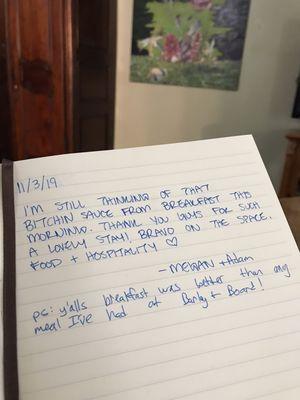 11/3/19
I'M STILL THINKING OF THAT
BITCHIN SAUCE FROM BREAKFAST THIS
MORNING. THANK YOU GUYS FOR SUCH
A LOVELY STAY! BRAVO ON THE SPACE,
FOOD + HOSPITALITY ♡
- MEGAN + Adam
PS: y'alls breakfast was better than any
meal I've had at Barley + Board!